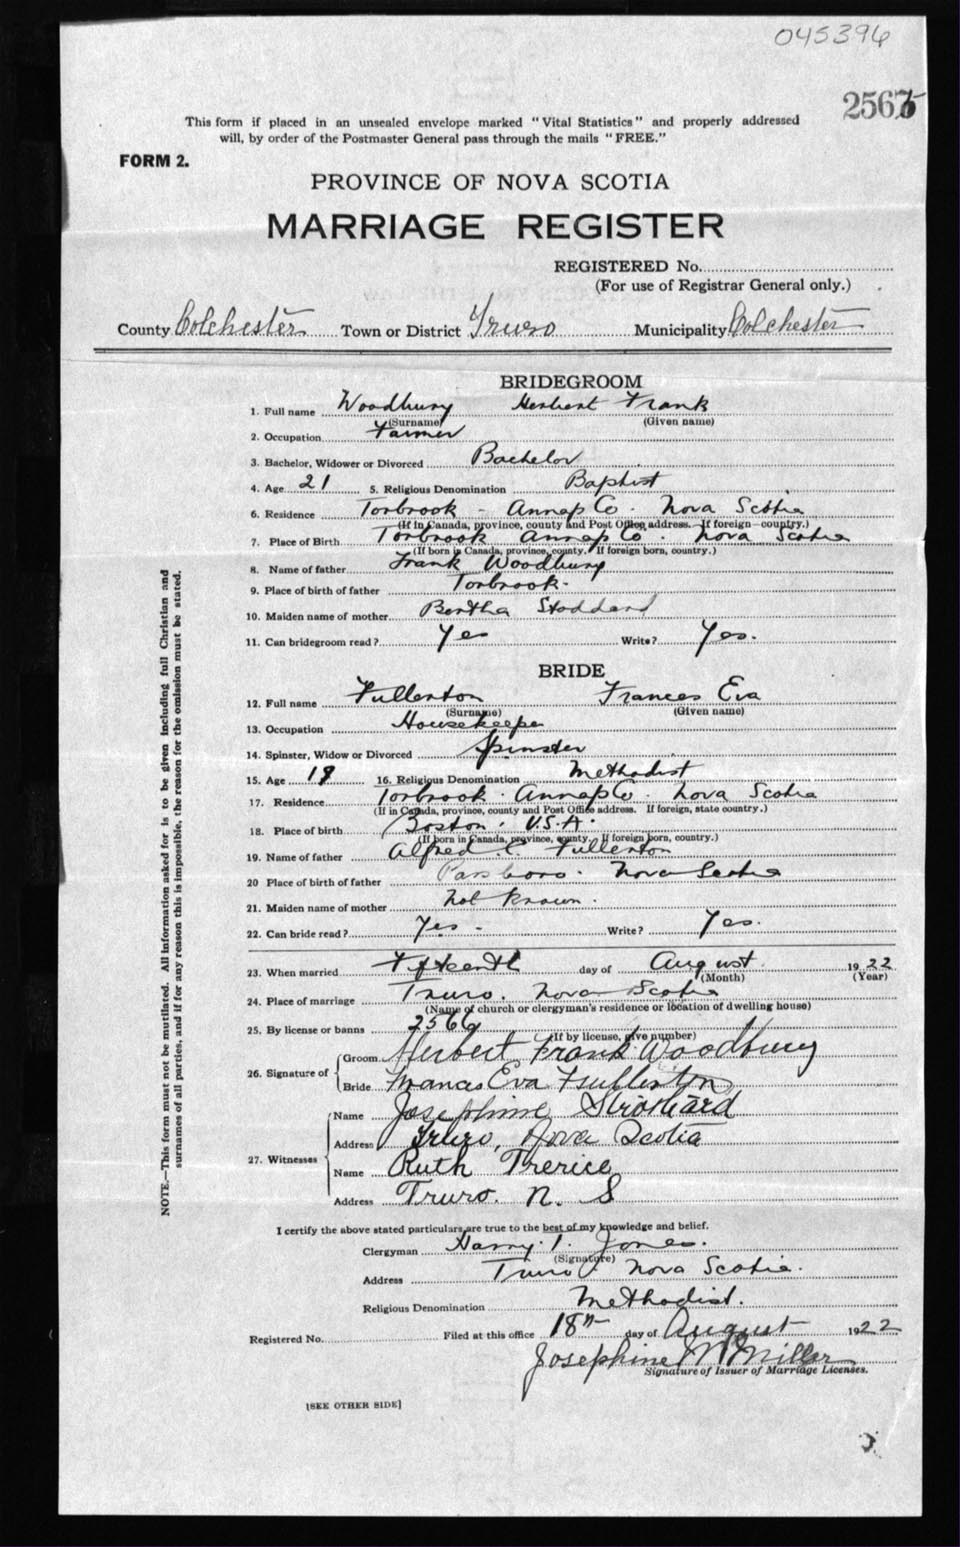 045396
2565
This form if placed in an unsealed envelope marked "Vital Statistics" and properly addressed
will, by order of the Postmaster General pass through the mails "FREE."
FORM 2.
PROVINCE OF NOVA SCOTIA
MARRIAGE REGISTER
REGISTERED No.
(For use of Registrar General only.)
County Colchester Town or District Truro Municipality Colchester
BRIDEGROOM
1. Full name Woodbury Herbert Frank
(Surname) (Given name)
2. Occupation Farmer
3. Bachelor, Widower or Divorced Bachelor
4. Age 21 5. Religious Denomination Baptist
6. Residence Torbrook - Annap Co. Nova Scotia
(If in Canada, province, county and Post Office address. If foreign—country.)
7. Place of Birth Torbrook Annap Co. Nova Scotia
(If born in Canada, province, county. If foreign born, country.)
8. Name of father Frank Woodbury
9. Place of birth of father Torbrook.
10. Maiden name of mother Bertha Stoddard
11. Can bridegroom read? Yes Write? Yes.
BRIDE
12. Full name Fullerton Frances Eva
(Surname) (Given name)
13. Occupation Housekeeper
14. Spinster, Widow or Divorced Spinster
15. Age 19 16. Religious Denomination Methodist
17. Residence Torbrook. Annap Co. Nova Scotia
(If in Canada, province, county and Post Office address. If foreign, state country.)
18. Place of birth Boston. U.S.A.
(If born in Canada, province, county. If foreign born, country.)
19. Name of father Alfred C. Fullerton
20 Place of birth of father Parsboro. Nova Scotia
21. Maiden name of mother Not Known.
22. Can bride read? Yes. Write? Yes.
23. When married Fifteenth day of August. 1922
(Month) (Year)
24. Place of marriage Truro. Nova Scotia
(Name of church or clergyman's residence or location of dwelling house)
25. By license or banns 2566
(If by license, give number)
26. Signature of
Groom Herbert Frank Woodbury
Bride Frances Eva Fullerton
27. Witnesses
Name Josephine
Address Truro, Nova Scotia
Name Ruth Trerice
Address Truro. N. S
I certify the above stated particulars are true to the best of my knowledge and belief.
Clergyman Harry. I. Jones.
(Signature)
Address Truro Nova Scotia.
Religious Denomination Methodist.
Registered No. Filed at this office 18th day of August 1922
Josephine McMiller
Signature of Issuer of Marriage Licenses.
[SEE OTHER SIDE]
NOTE.—This form must not be mutilated. All information asked for is to be given including full Christian and
surnames of all parties, and if for any reason this is impossible, the reason for the omission must be stated.